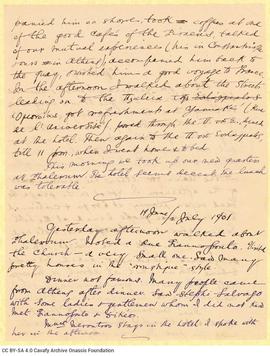 panied him on shore, took coffee at one
of the good cafés of the Piraeus, talked
of our mutual experiences (his in Constantinople
ours in Athens), accompanied him back to
the quay, & wished him a good voyage to France.
In the afternoon I walked about the Streets
leading on to the
(Rue
de l'Université) passed through the
at the hotel. Then again to the
till 11 p.m., when I went home & to bed.
This morning we took up our new quarters
at Phalerum. The hotel seems decent the lunch
was tolerable.
July 1901
Yesterday afternoon walked about
Phalerum. Noted a Rue Frangopoulo. Visited
the Church – a very small one. Saw many
pretty houses in the style
Dinner not famous. Many people came
from Athens after dinner. Saw Stephi Salvago
with some ladies & gentlemen whom I did not know.
Met Frangopoulo &
Mme stays in the hotel. I spoke with
her in the afternoon
CC BY-SA 4.0 Cavafy Archive Onassis Foundation